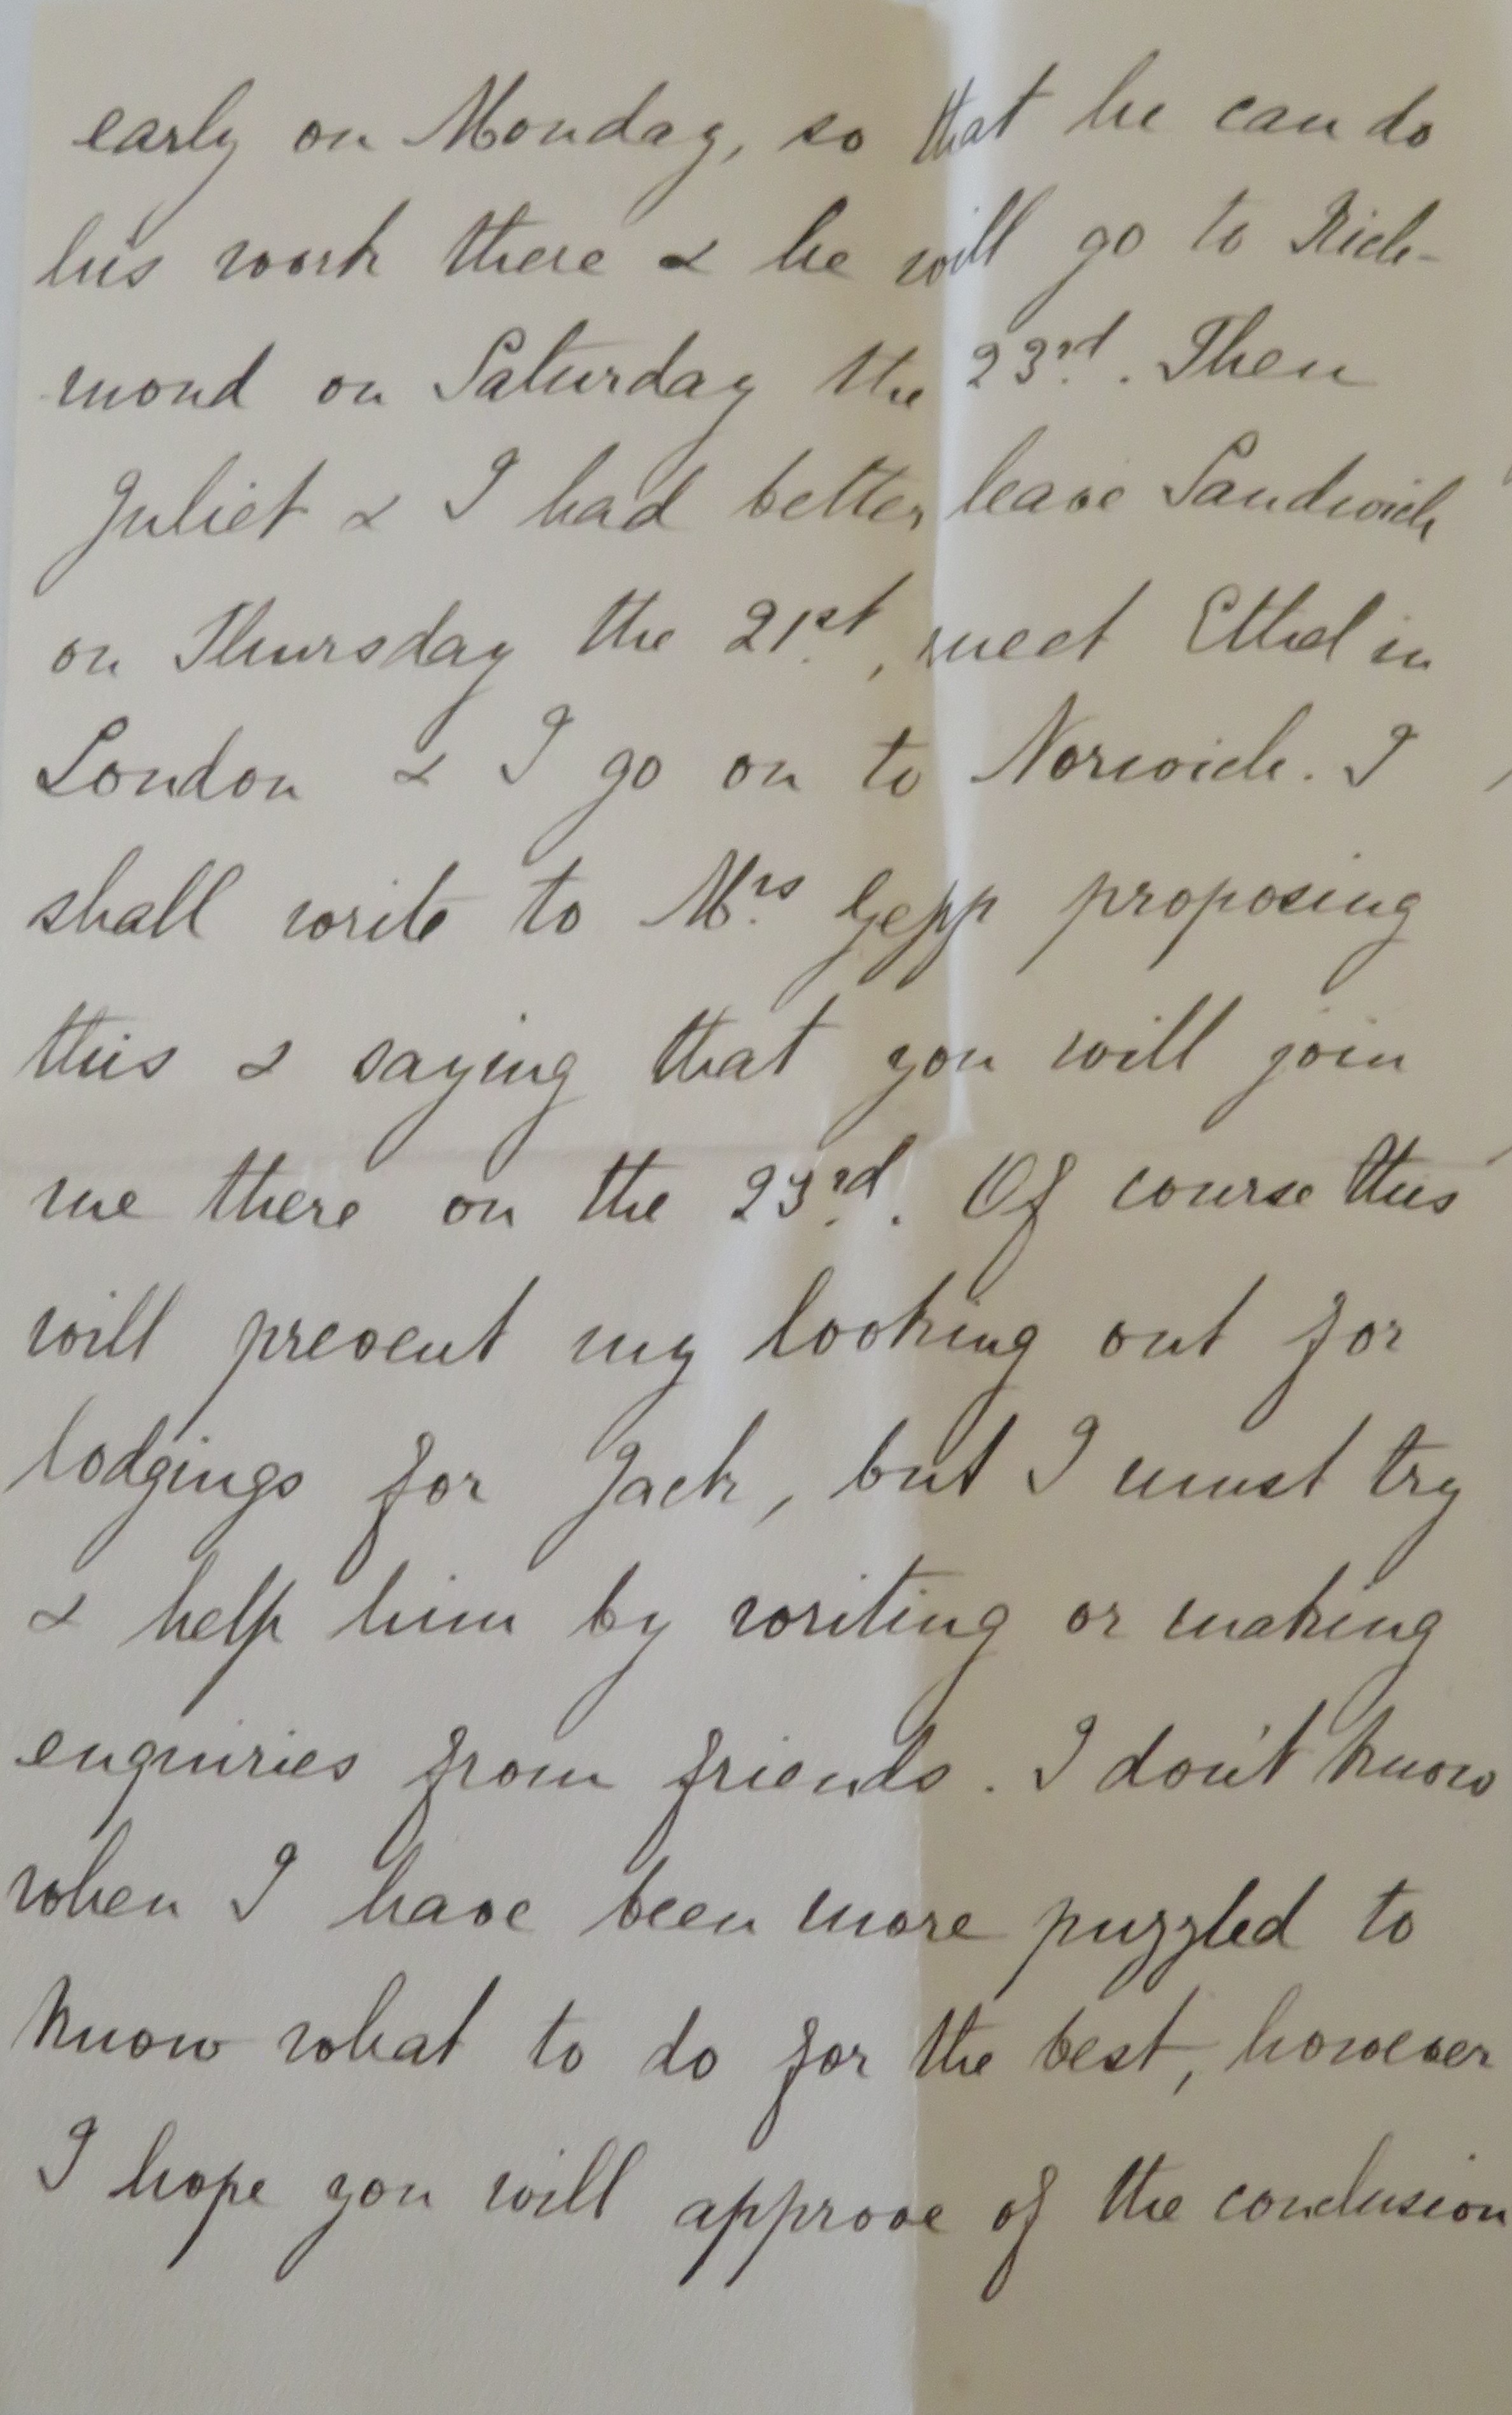 early on Monday, so that he can do
his work there & he will go to Rich-
mond on Saturday the 23rd. Then
Juliet & I had better leave Sandwich
on Thursday the 21st, meet Ethel in
London & I go on to Norwich. I
shall write to Mrs Gepp proposing
this & saying that you will join
me there on the 23rd. Of course this
will prevent my looking out for
lodgings for Jack, but I must try
& help him by writing or making
enquiries from friends. I don't know
when I have been more puzzled to
know what to do for the best, however
I hope you will approve of the conclusion